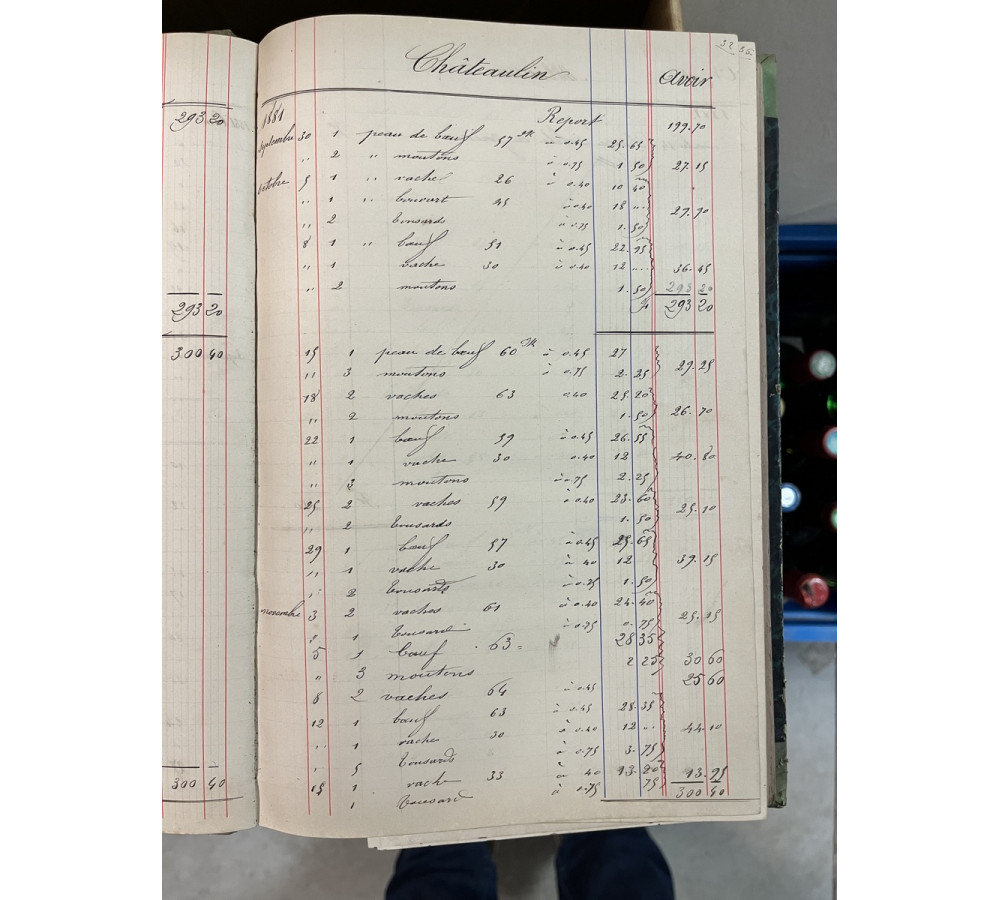 32 33
Châteaulin Avoir
293 20
1881 Report 199.70
Septembre 30 1 peau de bœuf 57 K à 0.45 25.65
" 2 " moutons à 0.75 1.50 27.15
Octobre 5 1 " vache 26 à 0.40 10 40
" 1 " 45 à 0.40 18 " 29.90
" 2 tousards à 0.75 1.50
8 1 " bœuf 51 à 0.45 22.95
" 1 vache 30 à 0.40 12 ... 36.45
" 2 moutons 1.50 293 20
293 20 293 20
300 40 15 1 peau de bœuf 60 K à 0.45 27
" 3 moutons à 0.75 2.25 29.25
18 2 vaches 63 0.40 25.20
" 2 moutons 1.50 26.70
22 1 bœuf 59 à 0.45 26.55
" 1 vache 30 0.40 12 40.80
" 3 moutons à 0.75 2.25
25 2 vaches 59 à 0.40 23.60
" 2 tousards 1.50 25.10
29 1 bœuf 57 à 0.45 25.65
" 1 vache 30 à 40 12 39.15
" 2 tousards à 0.75 1.50
novembre 3 2 vaches 61 à 0.40 24.40
" 1 tousard à 0.75 0.75 25.15
5 1 bœuf 63 = 28 35
" 3 moutons 2 25 30 60
8 2 vaches 64 à 0.45 25 60
12 1 bœuf 63 à 0.45 28.35
" 1 vache 30 à 0.40 12 ... 44.10
" 5 tousards à 0.75 3.75
15 1 vache 33 à 40 13.20
1 tousard à 0.75 75 13.95
300 40 300 40